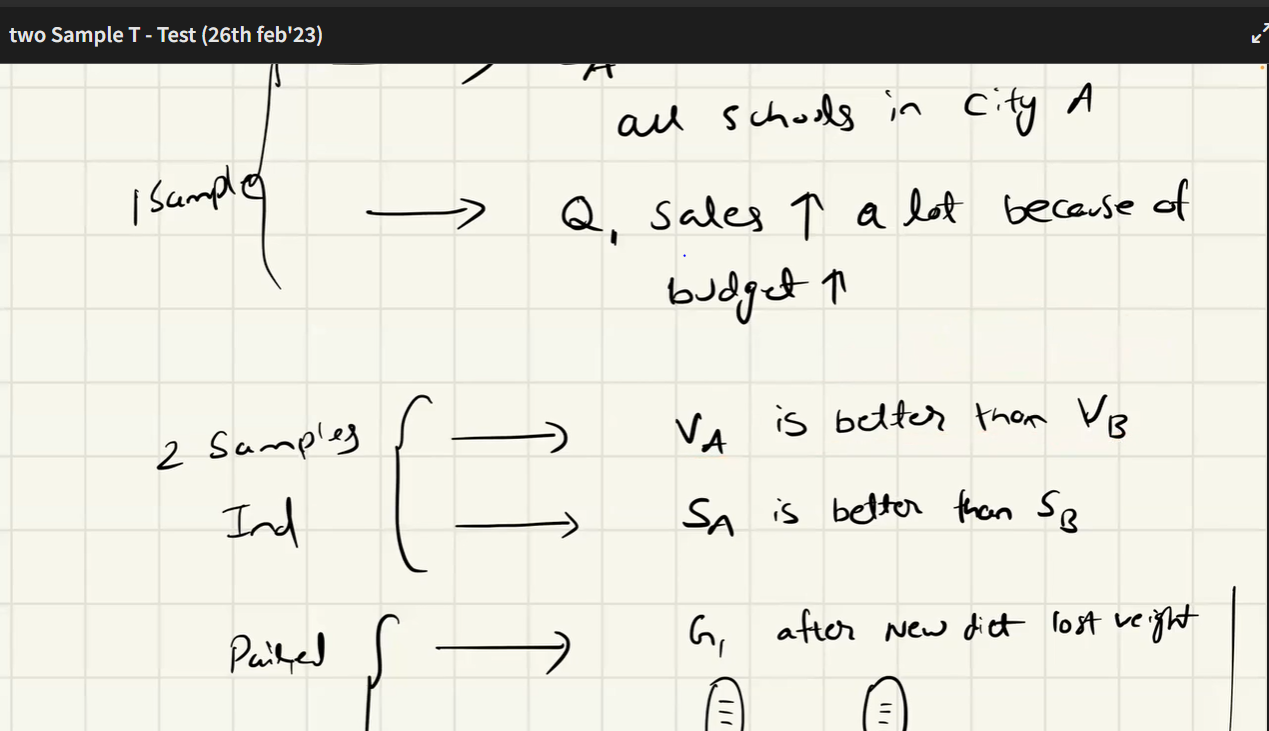 two Sample T - Test (26th feb'23)
A
all schools in City A
1 Sample → Q1 sales ↑ a lot because of
budget ↑
2 Samples → VA is better than VB
Ind → SA is better than SB
Paired → G1 after New diet lost weight